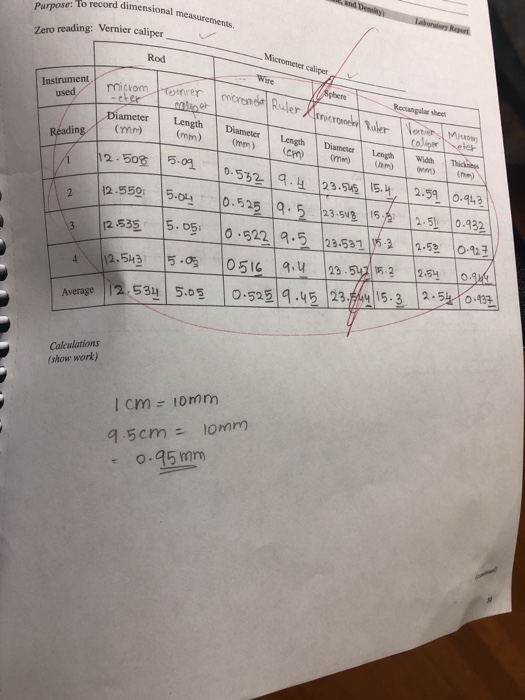 and Density)
Laboratory Report
Purpose: To record dimensional measurements.
Zero reading: Vernier caliper
Micrometer caliper
Rod Wire Sphere Rectangular sheet
Instrument used microm-eter vernier caliper micrometer Ruler micrometer Ruler Vernier caliper Microm eter
Reading Diameter (mm) Length (mm) Diameter (mm) Length (cm) Diameter (mm) Length (mm) Width (mm) Thickness (mm)
1 12.508 5.09 0.532 9.4 23.545 15.4 2.59 0.943
2 12.550 5.04 0.525 9.5 23.548 15.3 2.51 0.932
3 12.535 5.05 0.522 9.5 23.537 15.3 2.52 0.927
4 12.543 5.05 0516 9.4 23.547 15.2 2.54 0.944
Average 12.534 5.05 0.525 9.45 23.544 15.3 2.54 0.937
Calculations
(show work)
1 cm = 10mm
9.5cm = 10mm
= 0.95mm
(continued)